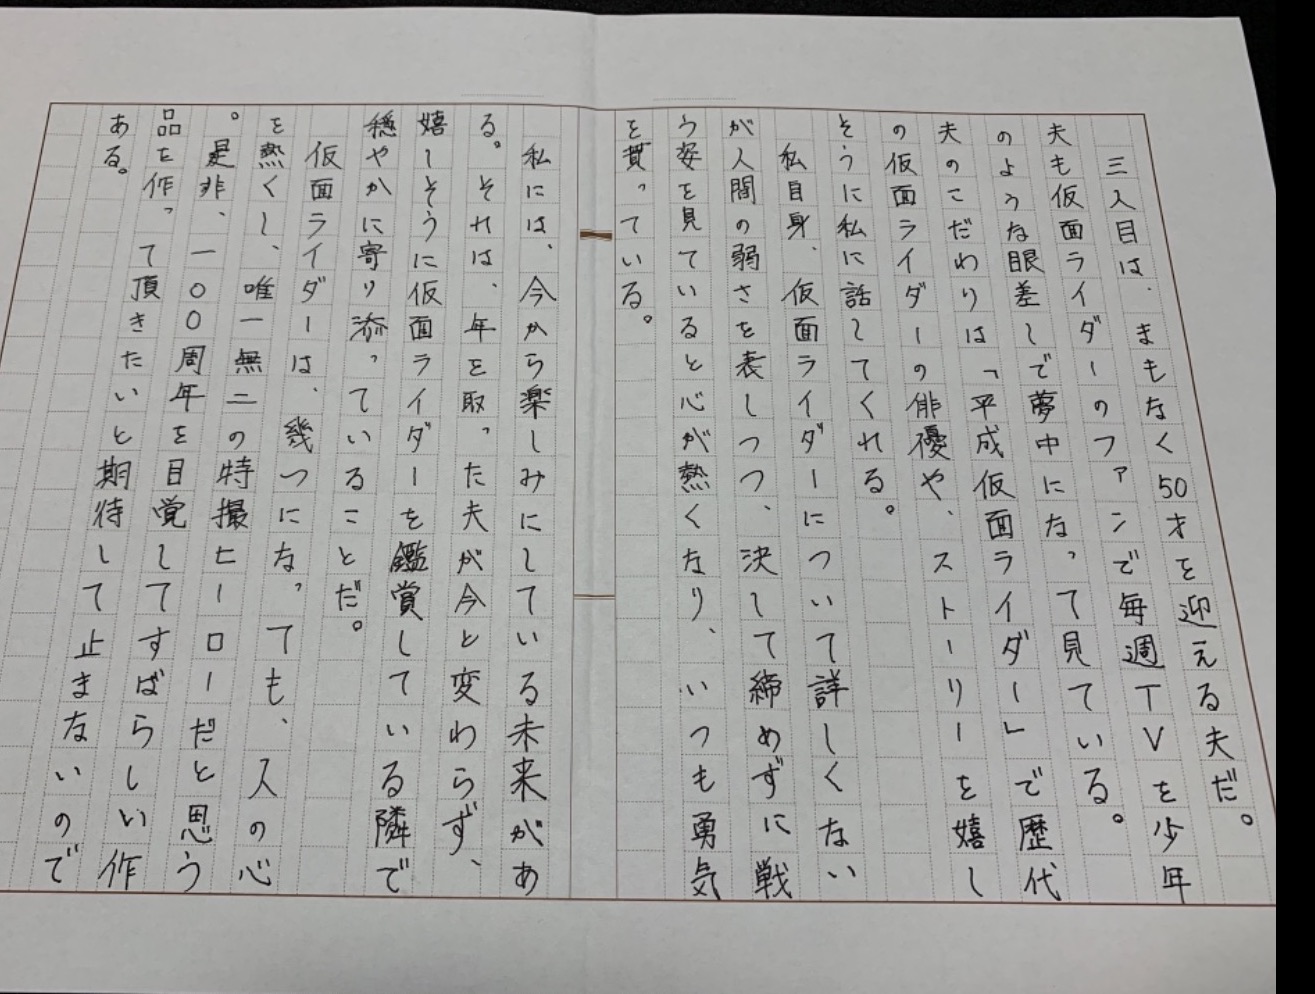 三人目は、まもなく50才を迎える夫だ。
夫も仮面ライダーのファンで毎週TVを少年
のような眼差しで夢中になって見ている。
夫のこだわりは「平成仮面ライダー」で歴代
の仮面ライダーの俳優や、ストーリーを嬉し
そうに私に話してくれる。
私自身、仮面ライダーについて詳しくない
が人間の弱さを表しつつ、決して締めずに戦
う姿を見ていると心が熱くなり、いつも勇気
を貰っている。
私には、今から楽しみにしている未来があ
る。それは、年を取った夫が今と変わらず、
嬉しそうに仮面ライダーを鑑賞している隣で
穏やかに寄り添っていることだ。
仮面ライダーは、幾つになっても、人の心
を熱くし、唯一無二の特撮ヒーローだと思う
。是非、一〇〇周年を目覚してすばらしい作
品を作って頂きたいと期待して止まないので
ある。